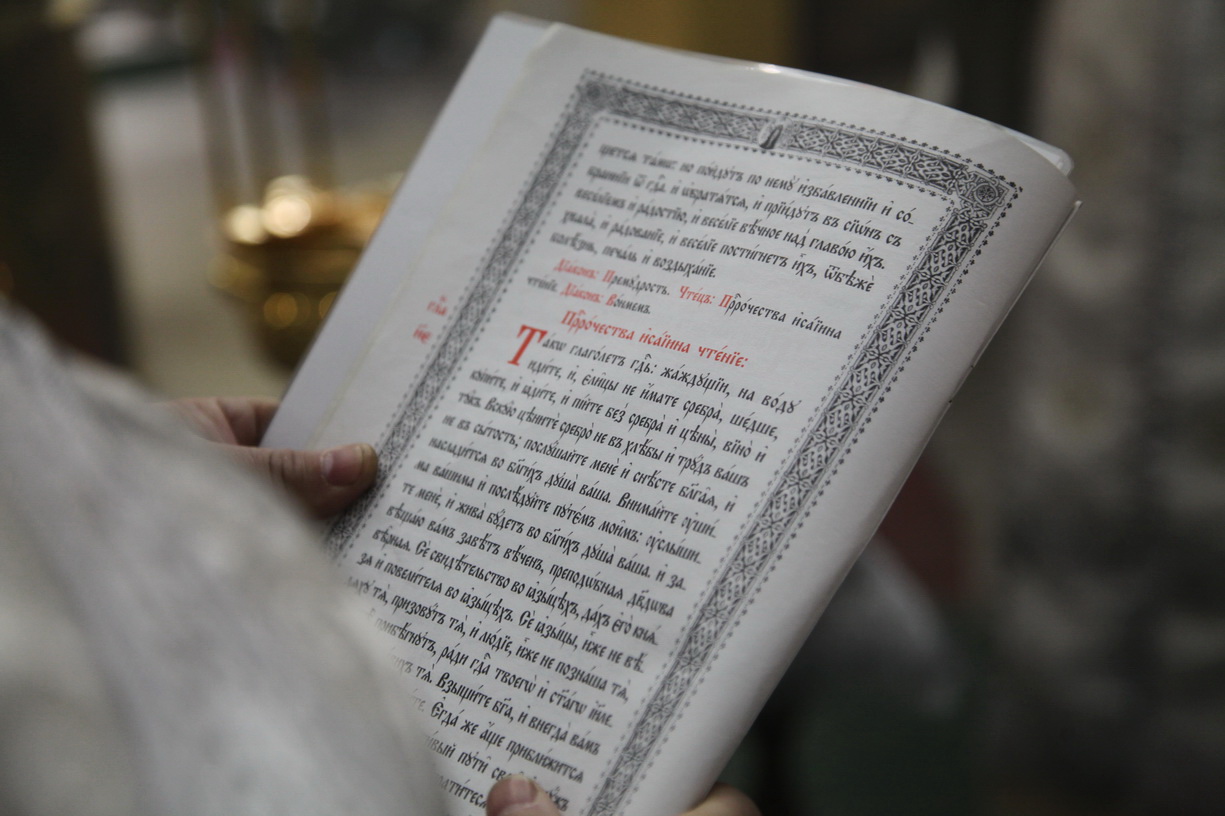 щетсѧ та́мѡ: но по́йдꙋтъ по немꙋ̀ и҆збавле́ннїи и҆ со́-
браннїи ѿ гд҇а, и҆ ѡ҆братѧ́тсѧ, и҆ прїи́дꙋтъ въ сїѡ́нъ съ
весе́лїемъ и҆ ра́достїю, и҆ весе́лїе вѣ́чное над̾ главо́ю и҆́хъ.
хвала̀, и҆ ра́дованїе, и҆ весе́лїе пости́гнетъ и҆̀хъ, ѿбѣжѐ
болѣ́знь, печа́ль и҆ воздыха́нїе.
Дїа́конъ: Премꙋ́дрость. Чте́цъ: Прⷪ҇ро́чества и҆са́їина
чте́нїе. Дїа́конъ: Во́нмемъ.
Прⷪ҇ро́чества и҆са́їина чте́нїе:
Та́кѡ глаго́летъ гд҇ь: жа́ждꙋщїи, на во́дꙋ
и҆ди́те, и҆, є҆ли́цы не и҆́мате сребра̀, ше́дше,
кꙋпи́те, и҆ ꙗ҆ди́те, и҆ пі́йте без̾ сребра̀ и҆ цѣны̀, вїно̀ и҆
тꙋ́къ. Вскꙋ́ю цѣ́ните сребро̀ не въ хлѣ́бы и҆ трꙋ́дъ ва́шъ
не въ сы́тость; послꙋ́шайте менѐ и҆ снѣ́сте бл҃га̑ѧ, и҆
наслади́тсѧ во бл҃ги́хъ дꙋша̀ ва́ша. Внима́йте ᲂу҆ши́-
ма ва́шима и҆ послѣ́дꙋйте пꙋтє́мъ мои̑мъ: ᲂу҆слы́ши-
те менѐ, и҆ жива̀ бꙋ́детъ во бл҃ги́хъ дꙋша̀ ва́ша. и҆ за-
вѣща́ю ва́мъ завѣ́тъ вѣ́ченъ, преподѡ́бнаѧ дв҃дѡва
вѣ̑рнаѧ. Сѐ свидѣ́тельство во ꙗ҆зы́цѣхъ, да́хъ є҆го̀ кнѧ́-
зѧ и҆ повели́телѧ во ꙗ҆зы́цѣхъ. Сѐ ꙗ҆зы́цы, и҆̀же не вѣ́-
дахꙋ тѧ̀, призовꙋ́тъ тѧ̀, и҆ лю́дїе, и҆̀же не позна́ша тѧ̀,
прибѣ́гнꙋтъ, ра́ди гд҇а твоегѡ̀ и҆ ст҃а́гѡ і҆и҃ле-
тѧ̀. Взыщи́те бг҃а, и҆ внегда̀ ва́мъ
Є҆гда́ же а҆́ще прибли́житсѧ
пꙋти̑